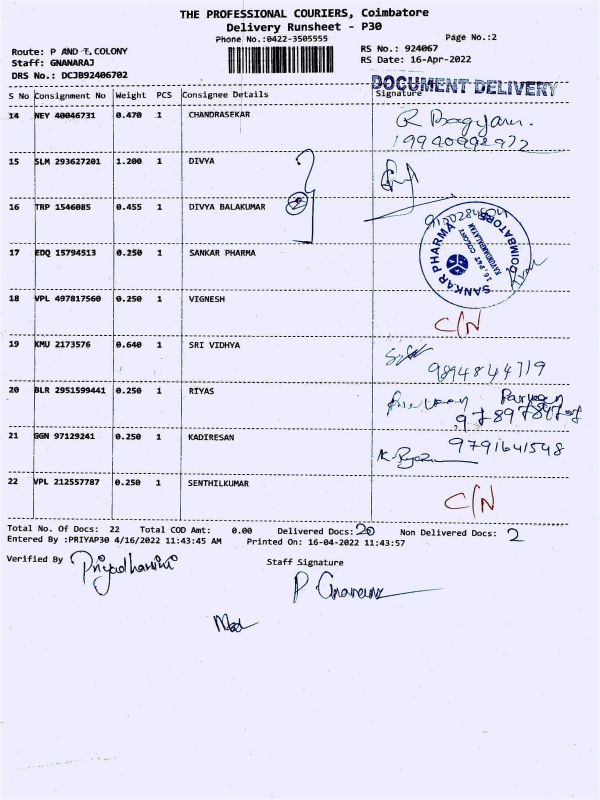 THE PROFESSIONAL COURIERS, Coimbatore
Delivery Runsheet - P30
Phone No.:0422-3505555
Page No.:2
Route: P AND T COLONY
RS No.: 924067
Staff: GNANARAJ
RS Date: 16-Apr-2022
DRS No.: DCJB92406702
DOCUMENT DELIVERY
S No Consignment No Weight PCS Consignee Details Signature
14 NEY 40046731 0.470 1 CHANDRASEKAR
15 SLM 293627201 1.200 1 DIVYA
16 TRP 1546085 0.455 1 DIVYA BALAKUMAR 2
SANKAR PHARMA
COIMBATORE
17 EDQ 15794513 0.250 1 SANKAR PHARMA
18 VPL 497817560 0.250 1 VIGNESH C/N
19 KMU 2173576 0.640 1 SRI VIDHYA
9894844719
20 BLR 2951599441 0.250 1 RIYAS
21 GGN 97129241 0.250 1 KADIRESAN 9791641548
22 VPL 212557787 0.250 1 SENTHILKUMAR C/N
Total No. Of Docs: 22 Total COD Amt: 0.00 Delivered Docs: 20 Non Delivered Docs: 2
Entered By :PRIYAP30 4/16/2022 11:43:45 AM Printed On: 16-04-2022 11:43:57
Verified By Priyadharsini Staff Signature